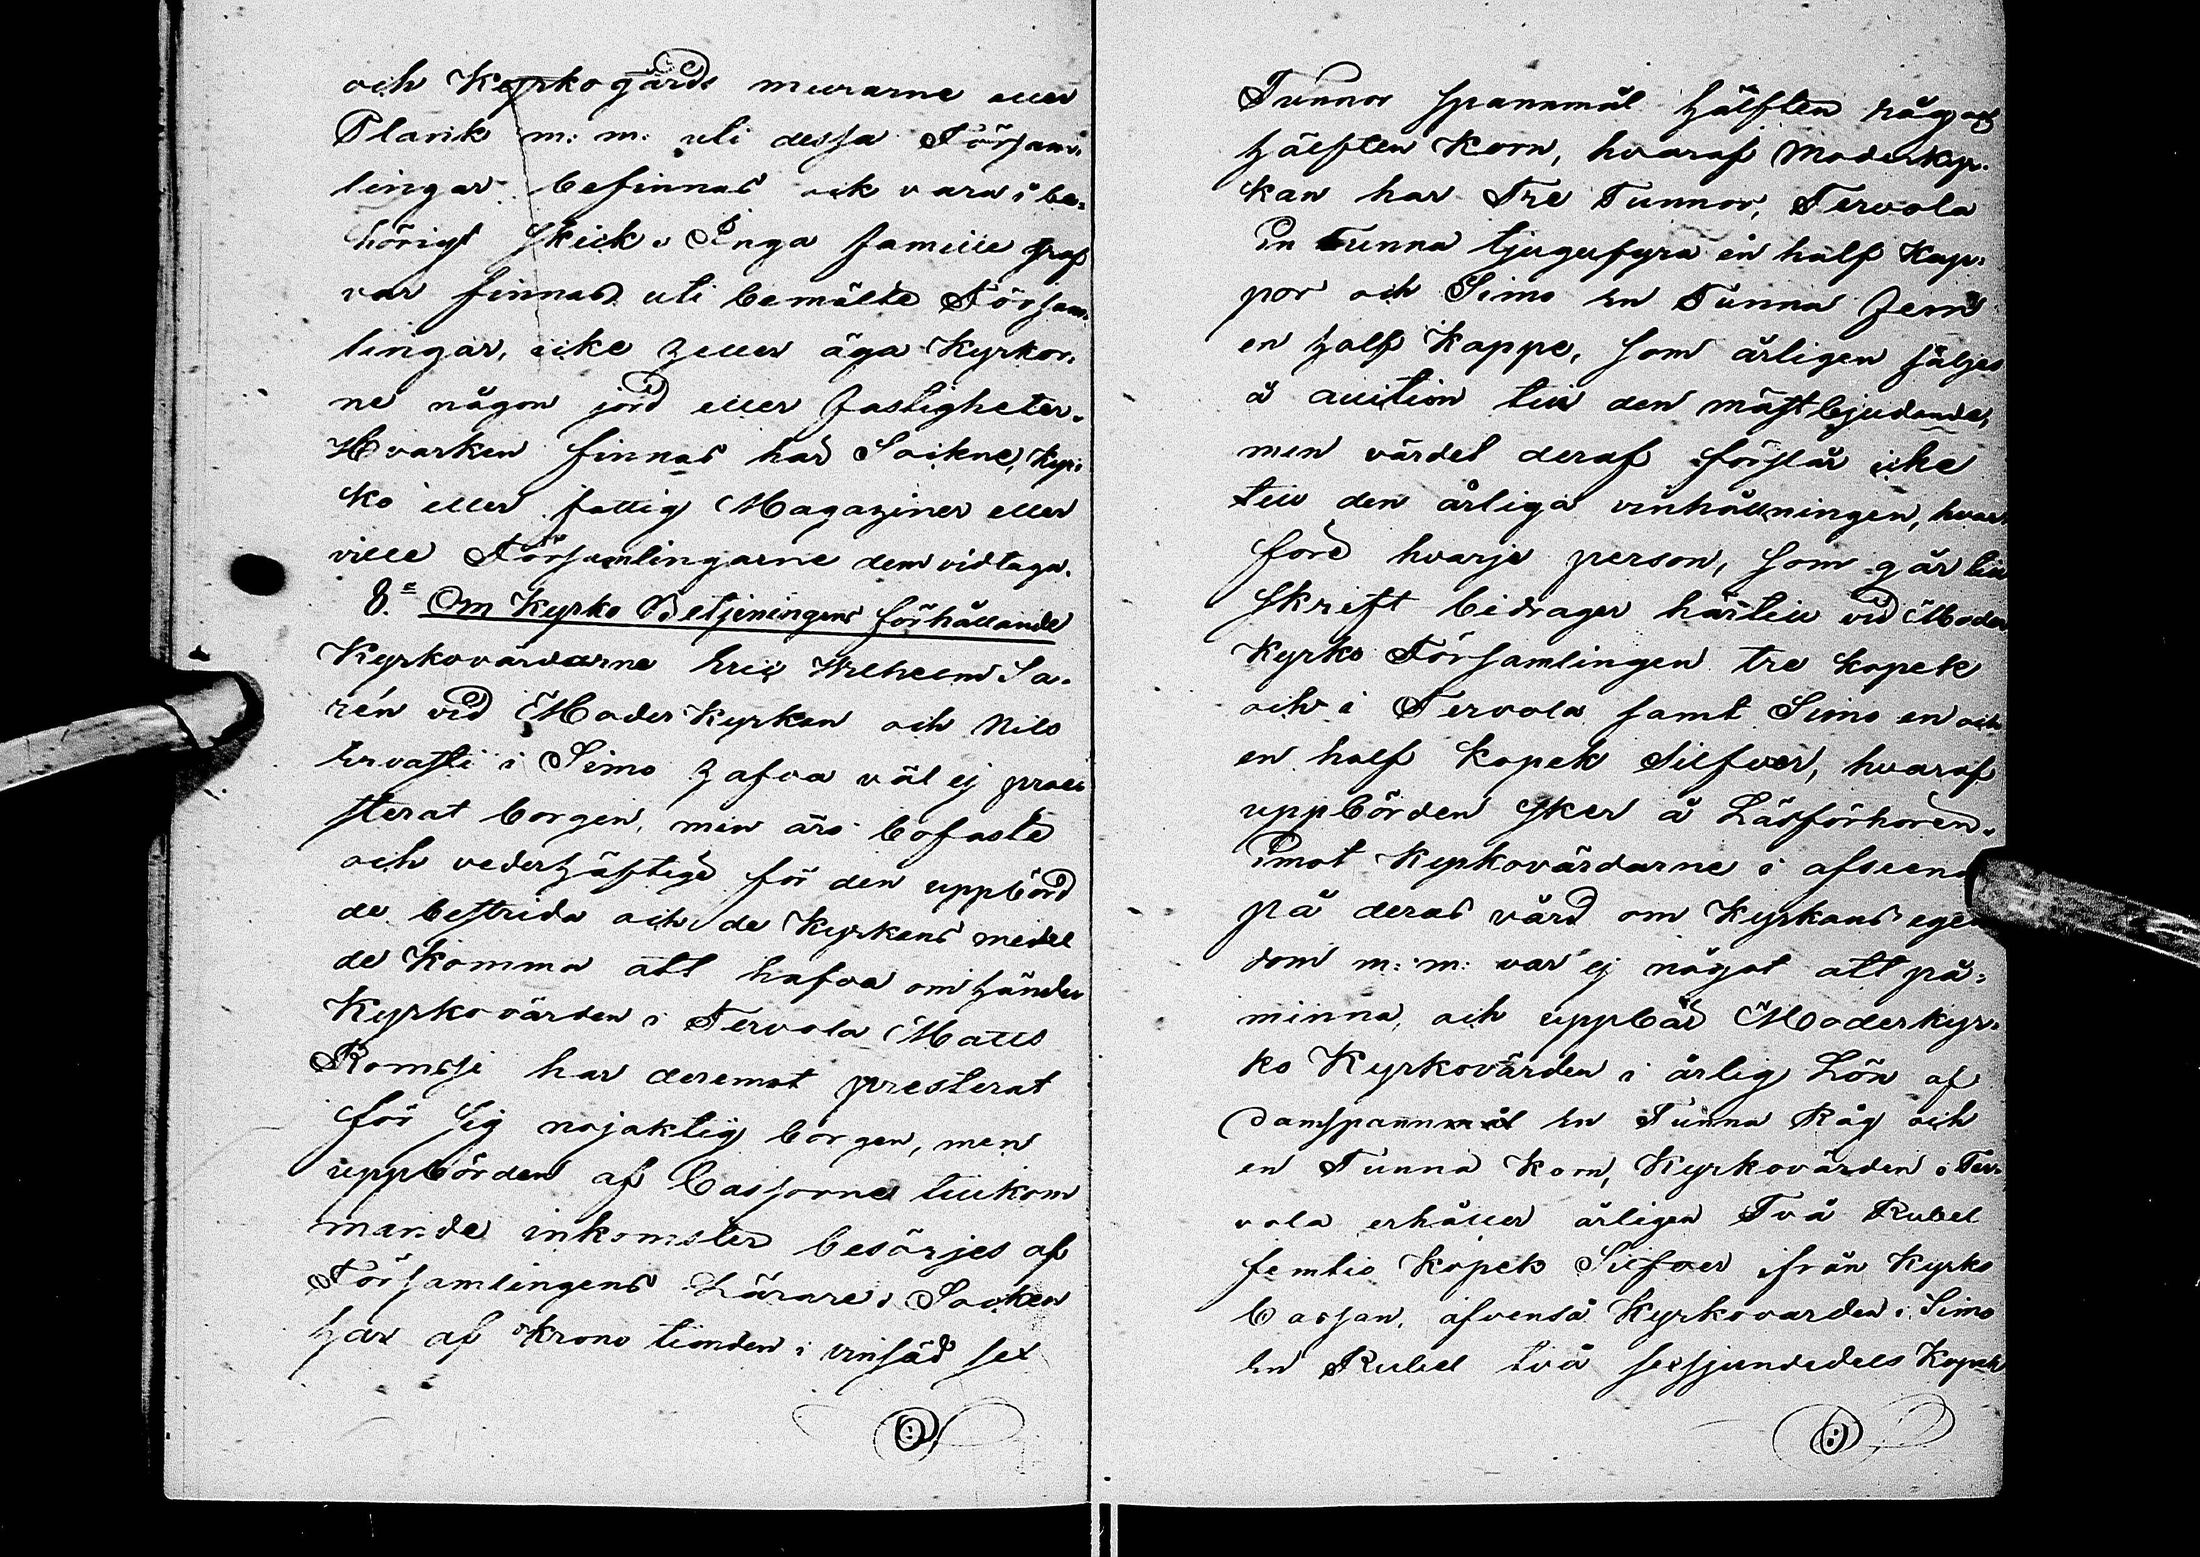 och Kyrkogårds murarne eller
Plank m: m: uti dessa Försam-
lingar befinnas ock vara i be-
hörigt skick. Inga famille graf
var finnas uti bemälte Försam-
lingar, icke heller äga Kyrkor-
ne någon jord eller fastigheter.
Hvarken finnas här Sockne, Kyr-
ko eller fattig Magaziner eller
ville Församlingarne dem vidtaga.
8.e Om Kyrko Betjeningens förhållande
Kyrkovärdarne Eric Wilhelm La-
rén vid Moder Kyrkan och Nils
Ervasti i Simo hafva väl ej præ-
sterat borgen, men äro bofaste
och vederhäftige för den uppbörd
de bestrida och de Kyrkans medel
de komma att hafva om händer
Kyrkovärden i Tervola Matts
Romssi har deremot presterat
för sig nojaktig borgen, men
uppbörden af Cassorne tillkom
mande inkomster besörjes af
Församlingens Lärare. Socken
har af Krono tionden i vinsäd sex
Tunnor spannmål hälften råg och
hälften Korn, hvaraf Moderkyr-
kan har Tre Tunnor, Tervola
En Tunna tjugufyra en half Kap-
por och Simo en Tunna fem
en half Kappe, som årligen säljes
å auction till den mästbjudande,
men värdet deraf förslår icke
till den årliga vinhållningen, hvar-
före hvarje person, som går till
skrift bidrager härtill vid Moder
Kyrko Församlingen tre kopek
och i Tervola samt Simo en och
en half kopek Silfver, hvaraf
uppbörden sker å Läsförhören.
Emot Kyrkovärdarne i afseende
på deras vård om Kyrkans egen
dom m: m: var ej något att på-
minna, och uppbär Moderkyr-
ko Kyrkovärden i årlig Lön af
damspannmål en Tunna Råg och
en Tunna Korn, Kyrkovärden i Ter-
vola erhåller årligen Två Rubel
femtio Kopek Silfver ifrån Kyrko
Cassan, äfvenså Kyrkovärden i Simo
En Rubel två sexsjundedels Kopek